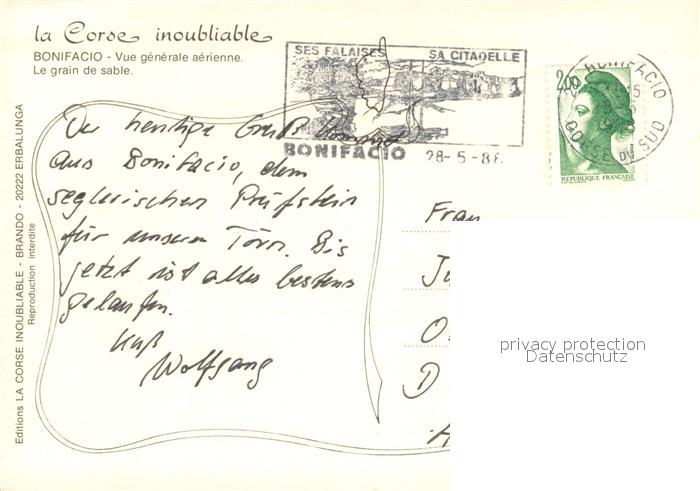 la Corse inoubliable
BONIFACIO - Vue générale aérienne.
Le grain de sable.
SES FALAISES SA CITADELLE
BONIFACIO 28-5-86
BONIFACIO
CORSE DU SUD
2,00
REPUBLIQUE FRANÇAISE
Editions LA CORSE INOUBLIABLE - BRANDO - 20222 ERBALUNGA
Reproduction interdite
Der heutige Gruß kommt
aus Bonifacio, dem
seglerischen Prüfstein
für unseren Törn. Bis
jetzt ist alles bestens
gelaufen.
Kuß
Wolfgang
Frau
D
privacy protection
Datenschutz